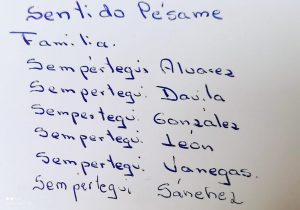 Sentido Pésame
Familia.
Sempértegui Alvarez
Sempertegui. Davila
Sempertegui. González
Sempertegui. León
Sempertegui. Vanegas.
Sempertegui Sánchez